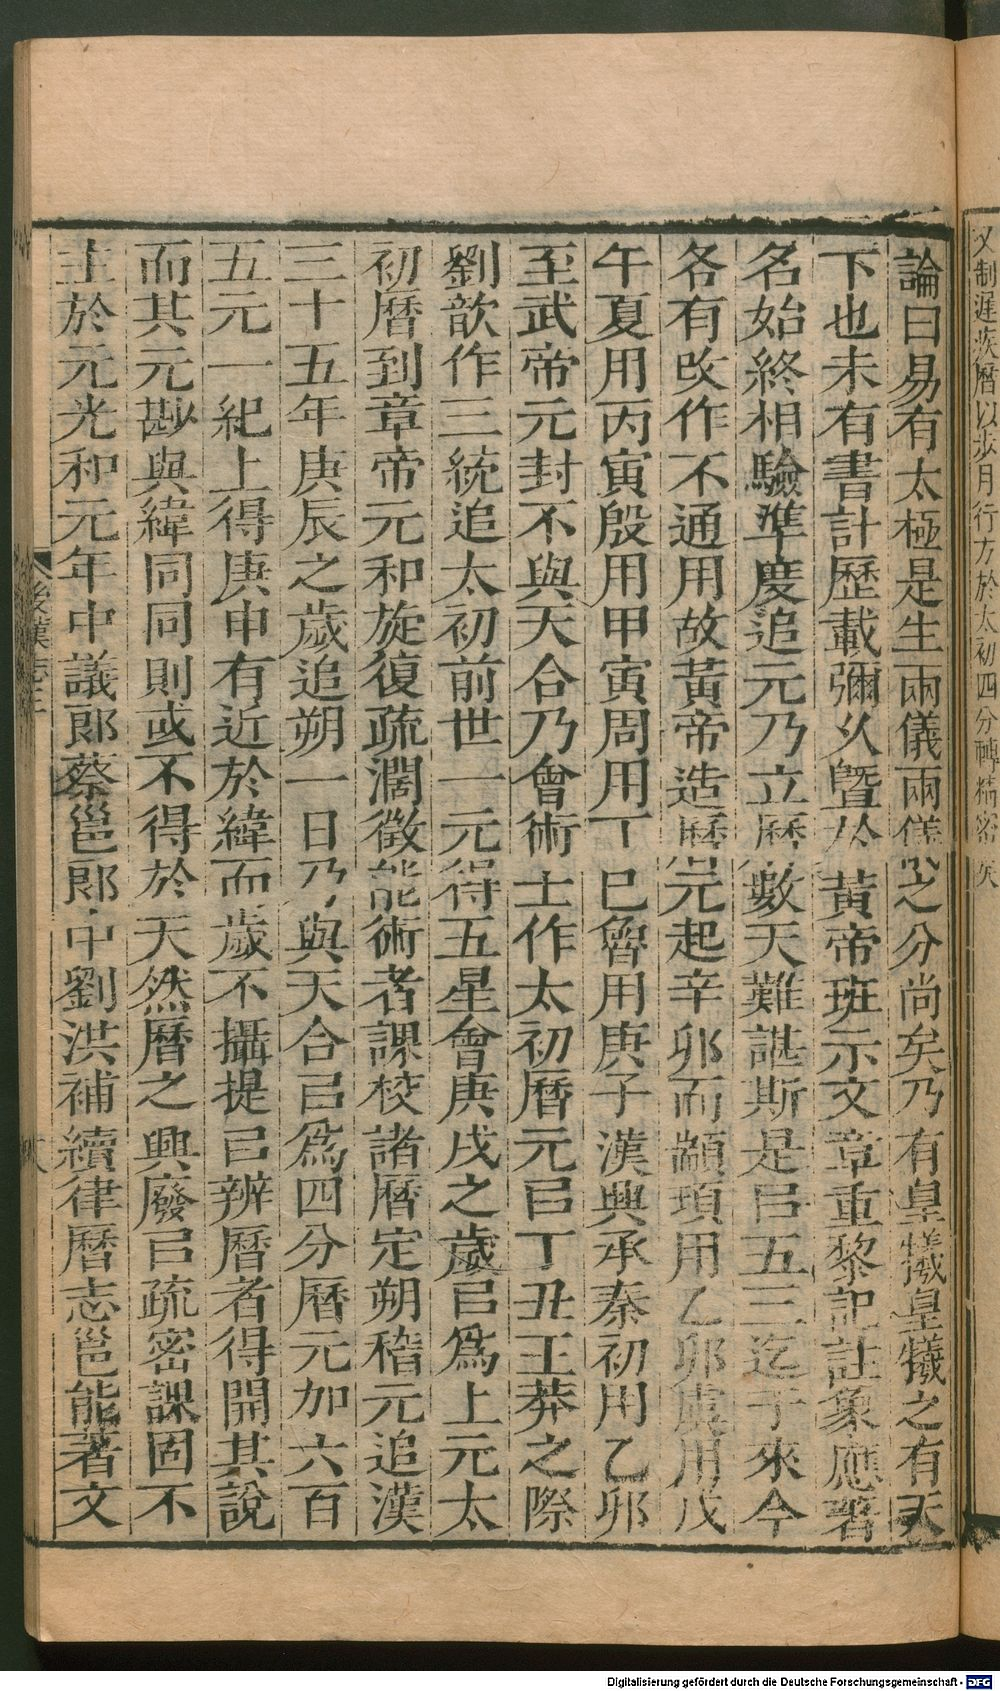 又制遲疾曆以步月行方於太初四分轉精密矣
論曰易有太極是生兩儀兩儀之分尚矣乃有皇犧皇犧之有天
下也未有書計歷載彌久暨於黃帝班示文章重黎記註象應著
名始終相驗準度追元乃立曆數天難諶斯是㠯五三迄于來今
各有改作不通用故黃帝造曆元起辛卯而顓頊用乙卯虞用戊
午夏用丙寅殷用甲寅周用丁巳魯用庚子漢興承秦初用乙卯
至武帝元封不與天合乃會術士作太初曆元㠯丁丑王莽之際
劉歆作三統追太初前世一元得五星會庚戌之歲㠯爲上元太
初曆到章帝元和旋復疏濶徵能術者課校諸曆定朔稽元追漢
三十五年庚辰之歲追朔一日乃與天合㠯爲四分曆元加六百
五元一紀上得庚申有近於緯而歲不攝提㠯辨曆者得開其說
而其元尠與緯同同則或不得於天然曆之興廢㠯疏密課固不
主於元光和元年中議郎蔡邕郎中劉洪補續律曆志邕能著文
後漢志三
Digitalisierung gefördert durch die Deutsche Forschungsgemeinschaft - DFG